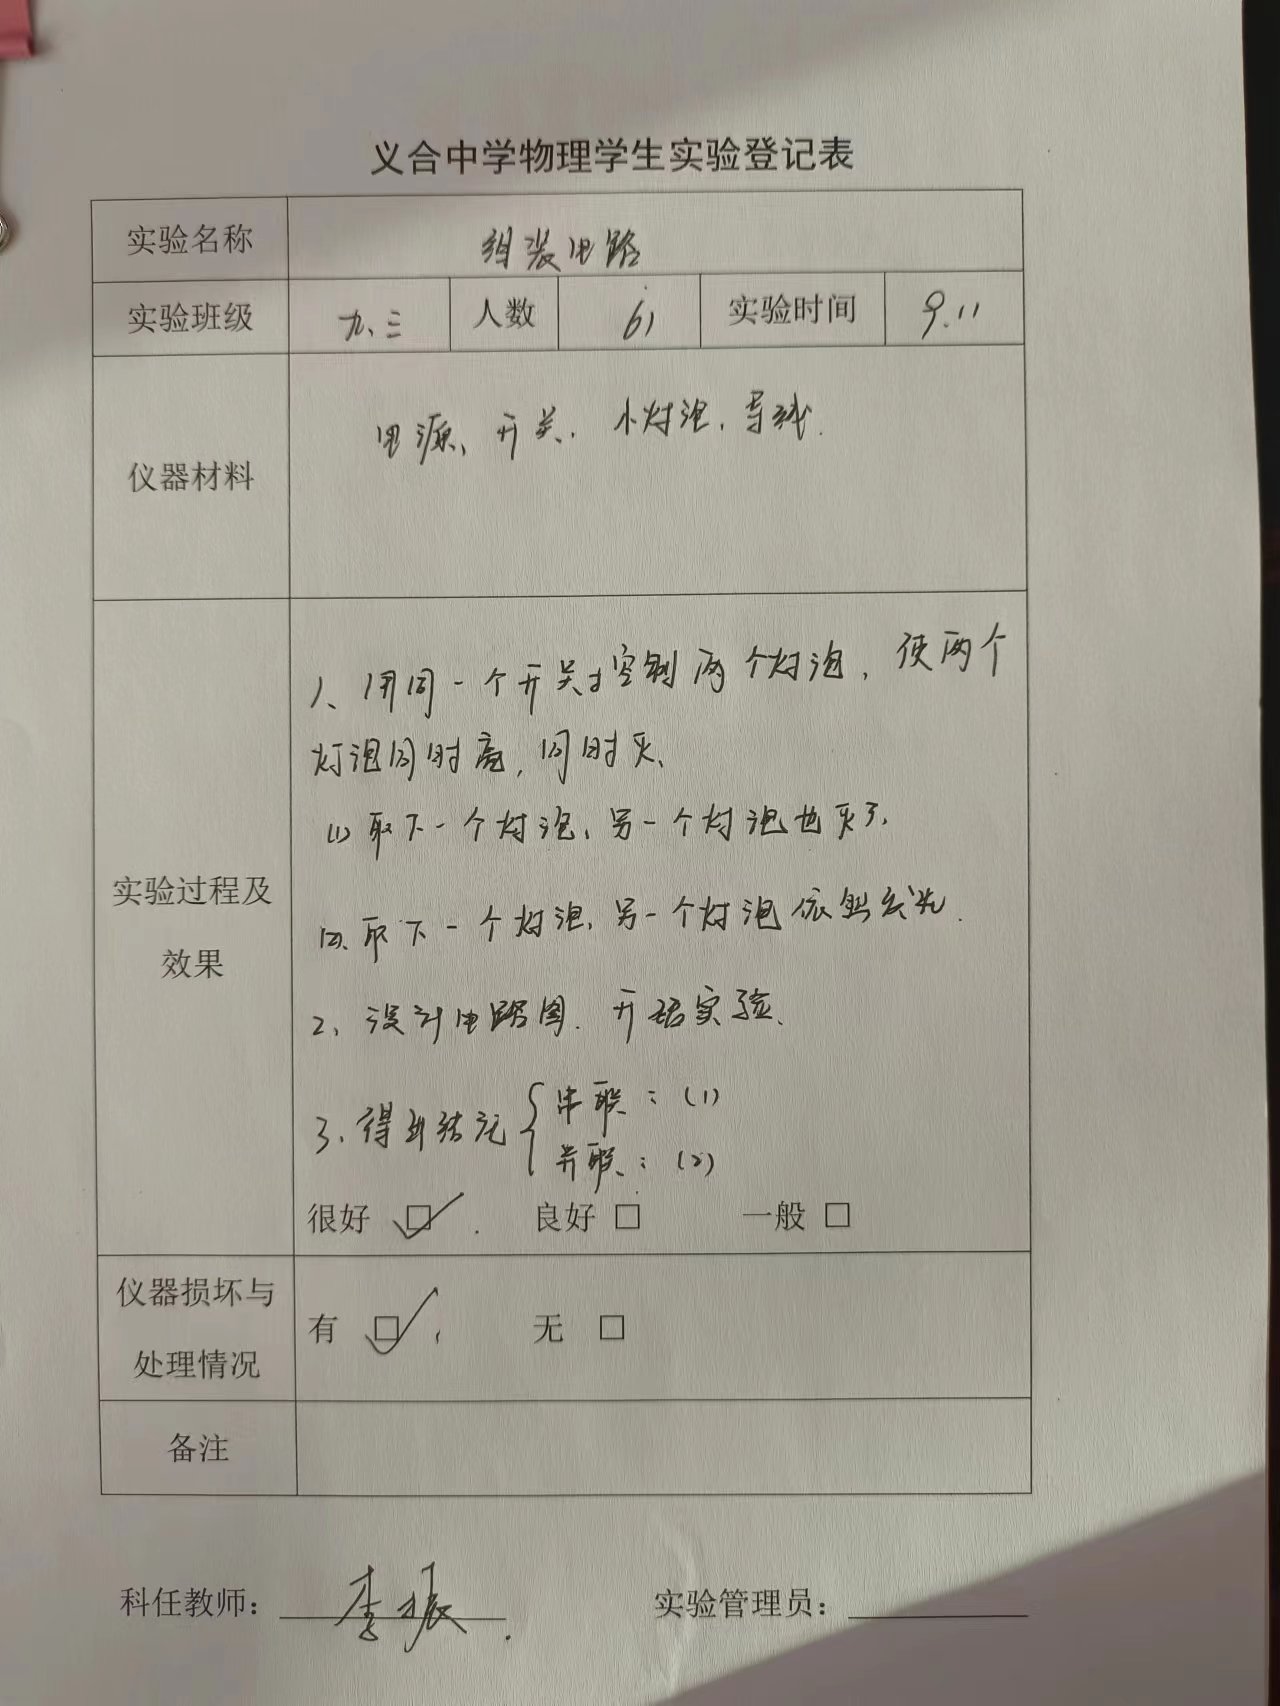 义合中学物理学生实验登记表
实验名称 组装电路
实验班级 九、三 人数 61 实验时间 9.11
仪器材料 电源、开关、小灯泡、导线.
实验过程及效果
1、用同一个开关控制两个灯泡，使两个
灯泡同时亮，同时灭、
(1) 取下一个灯泡，另一个灯泡也灭了、
(2)、取下一个灯泡，另一个灯泡依然发光.
2、设计电路图.开始实验、
3、得出结论 { 串联：(1)
并联：(2)
很好 ☑ . 良好 □ 一般 □
仪器损坏与处理情况 有 ☑ 无 □
备注
科任教师：李振. 实验管理员：